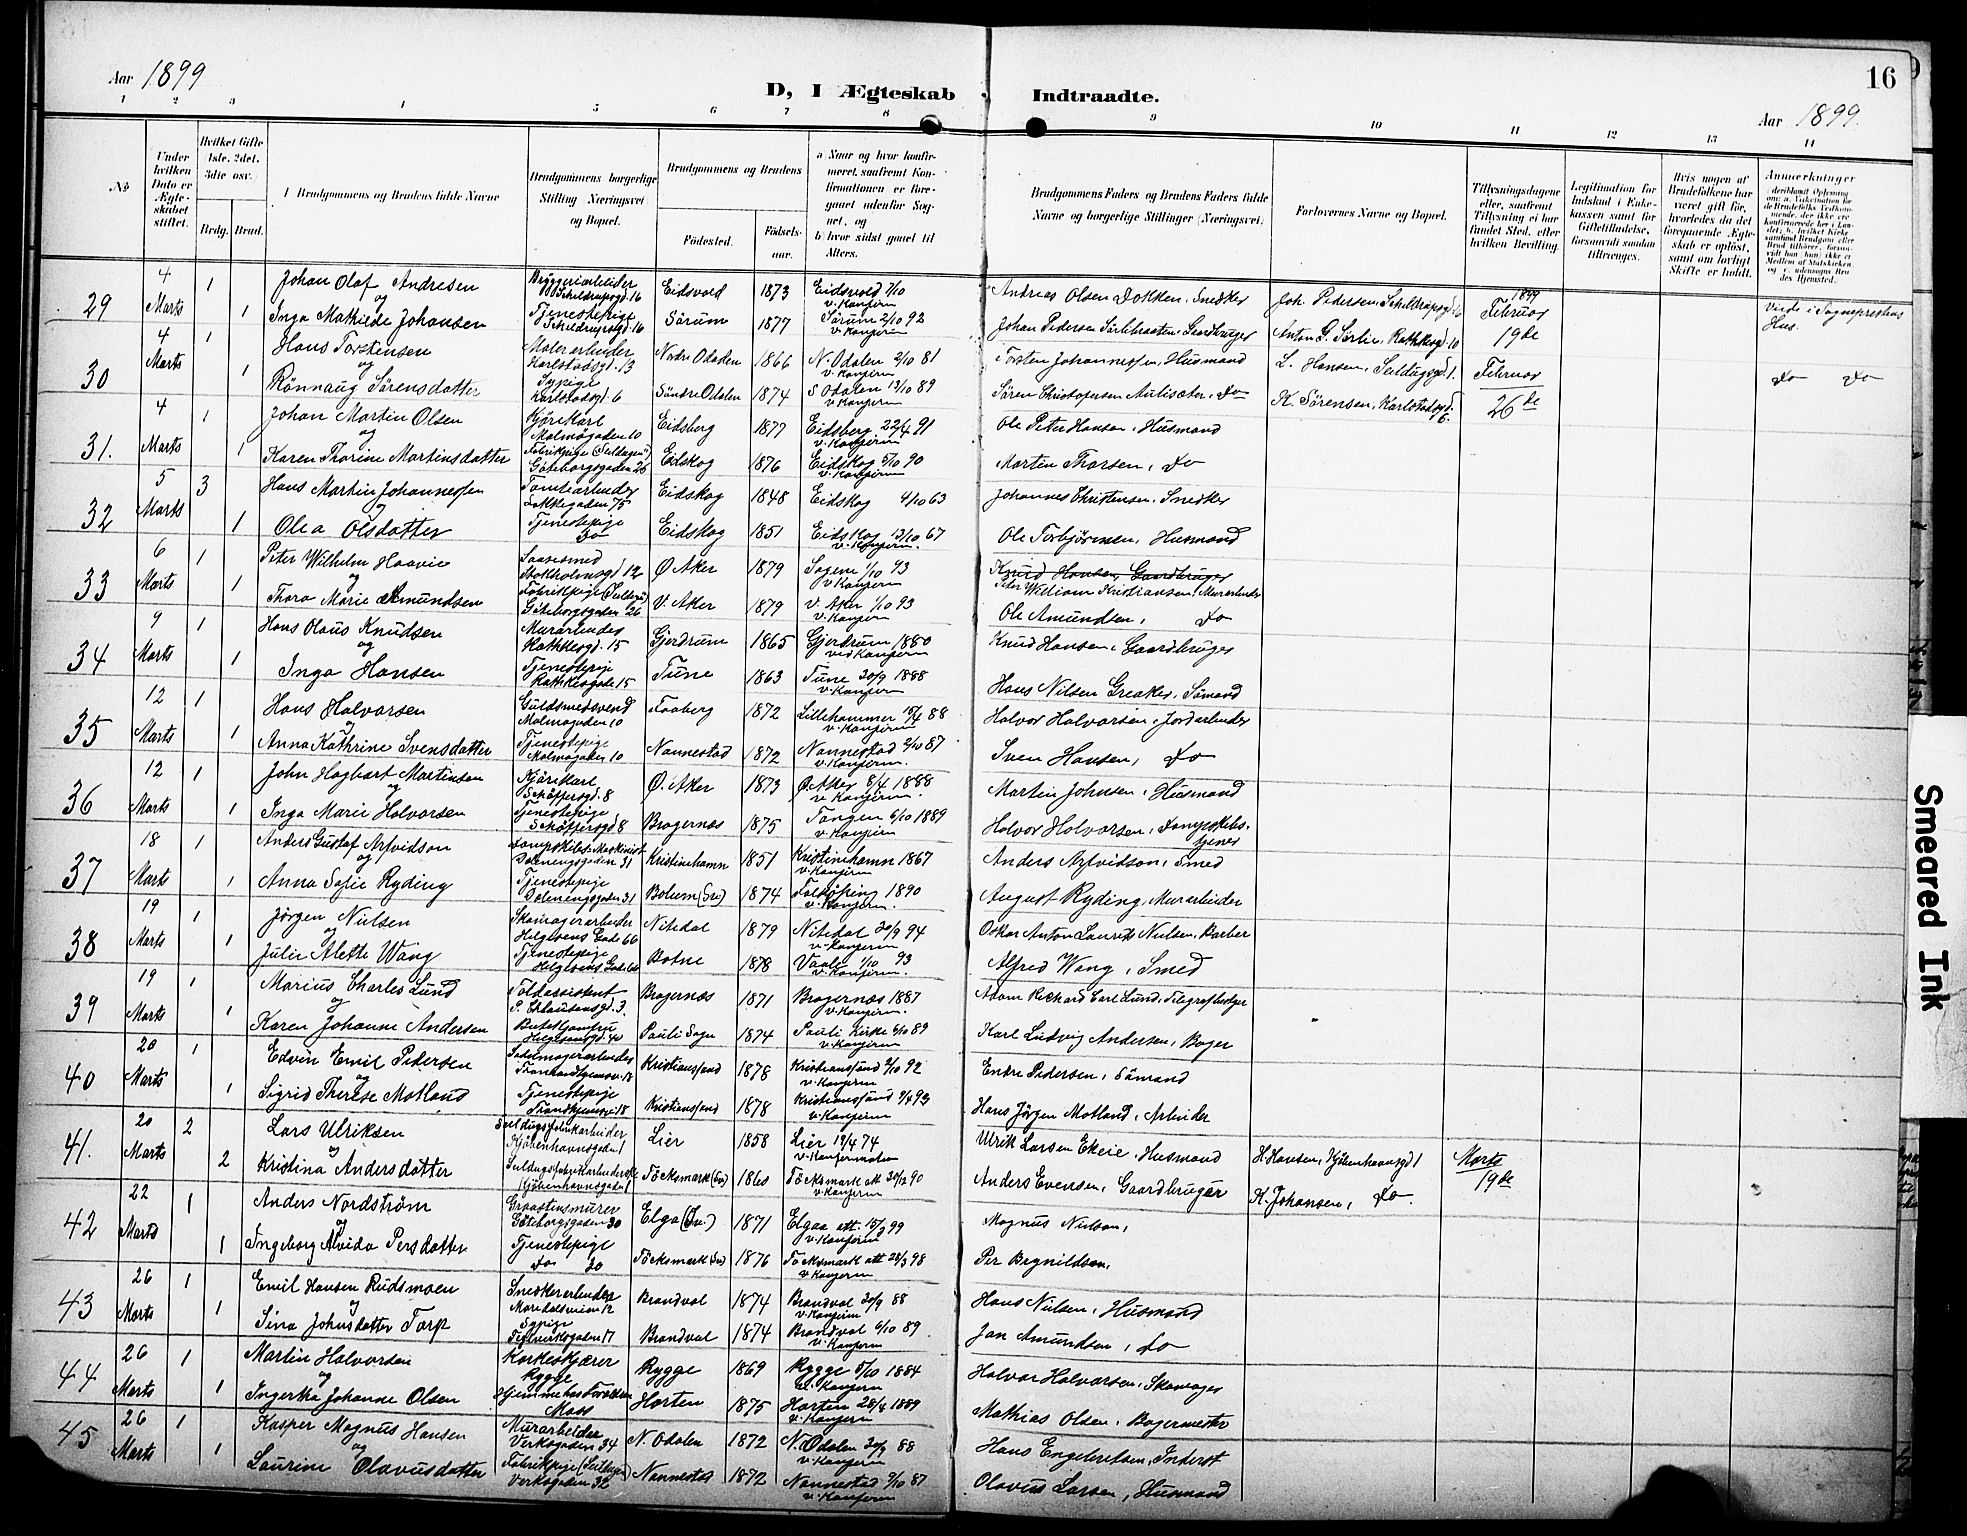 Aar 1899
D, I Ægteskab Indtraadte.
16
Aar 1899.
1 2 3 4 5 6 7 8 9 10 11 12 13 14
No
Under hvilken Dato er Ægteskabet stiftet.
Hvilket Gifte 1ste, 2det, 3die osv.
Brdg. Brud.
Brudgommens og Brudens fulde Navne
Brudgommens borgerlige Stilling (Næringsvei) og Bopæl.
Brudgommens og Brudens
Fødested.
Fødselsaar.
a Naar og hvor konfirmeret, saafremt Konfirmationen er foregaaet udenfor Sognet, og
b) hvor sidst gaaet til Alters.
Brudgommens Faders og Brudens Faders fulde Navne og borgerlige Stillinger (Næringsvei)
Forlovernes Navne og Bopæl.
Tillysningsdagene eller, saafremt Tillysning ei har fundet Sted, efter hvilken Bevilling.
Legitimation for Indskud i Enkekassen samt for Giftetilladelse, forsaavidt saadan tiltrænges.
Hvis nogen af Brudefolkene har været gift før, hvorledes da det foregaaende Ægteskab er opløst, samt om lovligt Skifte er holdt.
Anmærkninger
29 4 Marts 1 Johan Olaf Andresen Bryggeriarbeider Schleldrupsgd. 16 Eidsvold 1873 Eidsvold 7/10 v. Konfirm Andreas Olsen Dokken, Snedker Joh. Pedersen, 1899 Februar
og 1 Inga Mathilde Johansen Tjenestepige Sørum 1877 Sørum 2/10 92 v. Konfirm Johan Pedersen Gaardbruger Anton G. Sørlie, Rathkesgd. 10 19de Viede i Sognepræstens Hus.
30 4 Marts 1 Hans Torstensen Malerarbeider Karlstadsgd. 13 Nordre Odalen 1866 N. Odalen 2/10 81 v. Konfirm Torsten Johannesen, Husmand L. Hansen, Februar
og 1 Rønnaug Sørensdatter Sypige Karlstadsgd. 6 Søndre Odalen 1874 S Odalen 13/10 89 v. Konfirm Søren Christophersen Aulisæter, Do K. Sørensen, Karlstadsgd. 6. 26de Do Do
31. 4 Marts 1 Johan Martin Olsen Kjørekarl Malmøgaden 10 Eidsberg 1877 Eidsberg 22/4 91 v. Konfirm Ole Peter Hansen, Husmand
og 1 Karen Thorine Martinsdatter Fabrikpige Göteborgsgaden 26 Eidskog 1876 Eidskog 5/10 90 v. Konfirm Martin Thorsen, Do
32 5 Marts 3 Hans Martin Johannesen Tomtearbeider Lakkegaden 75 Eidskog 1848 Eidskog 4/10 63 Johannes Christensen, Snedker
og 1 Olea Olsdatter Tjenestepige Do Eidskog 1851 Eidskog 13/10 67 v. Konfirm. Ole Torbjørnsen, Husmand
33 6 Marts 1 Peter Wilhelm Haavie Laasesmed Stokholmsgd 12 Ø. Aker 1879 Sagene 1/10 93 v Konfirm Knud Hansen, Gaardbruger
Peter William Kristiansen, Murarbeider
og 1 Thora Marie Amundsen Fabrikpige Göteborgsgaden 26 V. Aker 1879 V. Aker 1/10 93 v. Konfirm Ole Amundsen, Do
34 9 Marts 1 Hans Olaus Knudsen Murarbeider Rathkesgd. 15 Gjerdrum 1865 Gjerdrum 1880 ved Konfirm Knud Hansen, Gaardbruger
og 1 Inga Hansen Tjenestepige Rathkesgade 15 Tune 1863 Tune 30/9 1888 v. Konfirm Hans Nilsen Greaker, Sømand
35 12 Marts 1 Hans Halvorsen Guldsmedsvend Malmøgaden 10 Faaberg 1872 Lillehammer 15/4 88 v. Konfirm Halvor Halvorsen, Jordarbeider
og 1 Anna Kathrine Svensdatter Tjenestepige Malmøgaden 10 Nannestad 1872 Nannestad 2/10 87 v. Konfirm. Sven Hansen, Do
36 12 Marts 1 John Hagbart Martinsen Kjørekarl Schøffersgd. 8 Ø. Aker 1873 Ø. Aker 8/4 1888 v. Konfirm. Martin Johnsen, Husmand
og 1 Inga Marie Halvorsen Tjenestepige Schøffersgd 8 Bragernæs 1875 Tangen 6/10 1889 v. Konfirm Halvor Halvorsen, Dampskibsfører
37 18 Marts 1 Anders Gustaf Arfvidson Dampskibs-Maskinist Dæleneugsgaden 31 Kristinehamn 1851 Kristinehamn 1867 v. Konfirm Anders Arfvidson, Smed
og 1 Anna Sofie Ryding Tjenestepige Dæleneugsgaden 31 Bolum (Sv) 1874 Falköping 1890 v. Konfirm. August Ryding, Murarbeider
38 19 Marts 1 Jørgen Nielsen Skomagerarbeider Helgesens Gade 66 Nitedal 1879 Nitedal 30/9 94 v. Konfirm Oskar Anton Laurits Nielsen, Barber
og 1 Julie Alette Wang Tjenestepige Helgesens Gade 66 Botne 1878 Vaale 1/10 93 v. Konfirm. Alfred Wang, Smed
39 19 Marts 1 Marius Charles Lund Toldassistent Bragernæs 1871 Bragernæs 1887 v. Konfirm. Adam Richard Carl Lund, Telegrafbestyrer
og 1 Karen Johanne Andersen Butikjomfru Helgesensgd. 40 Pauli Sogn 1874 Pauli Kirke 6/10 89 v. Konfirm Karl Ludvig Andersen, Bager
40 20 Marts 1 Edvin Emil Pedersen Sadelmagerarbeider Kristianssand 1878 Kristianssand 2/10 92 v. Konfirm Endre Pedersen, Sømand
og 1 Sigrid Therese Motland Tjenestepige Kristianssand 1878 Kristianssand 9/4 93 v. Konfirm Hans Jørgen Motland, Arbeider
41. 20 Marts 2 Lars Ulriksen Seildugsfabrikarbeider Kjøbenhavnsgaden 1 Lier 1858 Lier 19/4 74 v. Konfirmation Ulrik Larsen Ekeie, Husmand H. Hansen, Kjøbenhavnsgd 1 Marts
og 2 Kristina Andersdatter Seildugsfabrikarbeiderske Kjøbenhavnsgaden 1 Töcksmark (Sv) 1860 Töcksmark att 30/12 90 v. Konfirm Anders Evensen, Gaardbruger K. Johansen, Do 19de
42 22 Marts 1 Anders Nordstrøm Graastensmurer Göteborgsgaden 30 Elga (Sv.) 1871 Elgaa att. 15/2 99 v. Konfirm Magnus Nielson,
og 1 Ingeborg Alvida Persdatter Tjenestepige Do 30 Töcksmark (Sv) 1876 Töcksmark att 28/3 98 v Konfirm Per Begnildson,
43 26 Marts 1 Emil Hansen Rudsmoen Snedkerarbeider Maridalsveien 12 Brandval 1874 Brandval 30/9 88 v. Konfirm Hans Nielsen, Husmand
og 1 Sina Johnsdatter Torp Sypige Teglverksgaden 17 Brandval 1874 Brandval 6/10 89 v. Konfirm Jan Amundsen, Do
44 26 Marts 1 Martin Halvorsen Korkeskjærer Rygge Rygge 1869 Rygge 5/10 1884 v. Konfirm Halvor Halvorsen, Skomager
og 1 Ingertha Johanne Olsen Hjemme hos Forældre Moss Horten 1875 Horten 28/4 1889 v. Konfirm Mathias Olsen, Bagermester
45 26 Marts 1 Kasper Magnus Hansen Murarbeider Verksgaden 34 N. Odalen 1872 N. Odalen 30/9 88 v. Konfirm Hans Engebretsen, Inderst
og 1 Laurine Olavusdatter Fabrikpige Verksgaden 32 Nannestad 1872 Nannestad 2/10 87 v. Konfirm Olavus Larsen, Husmand
Smeared Ink